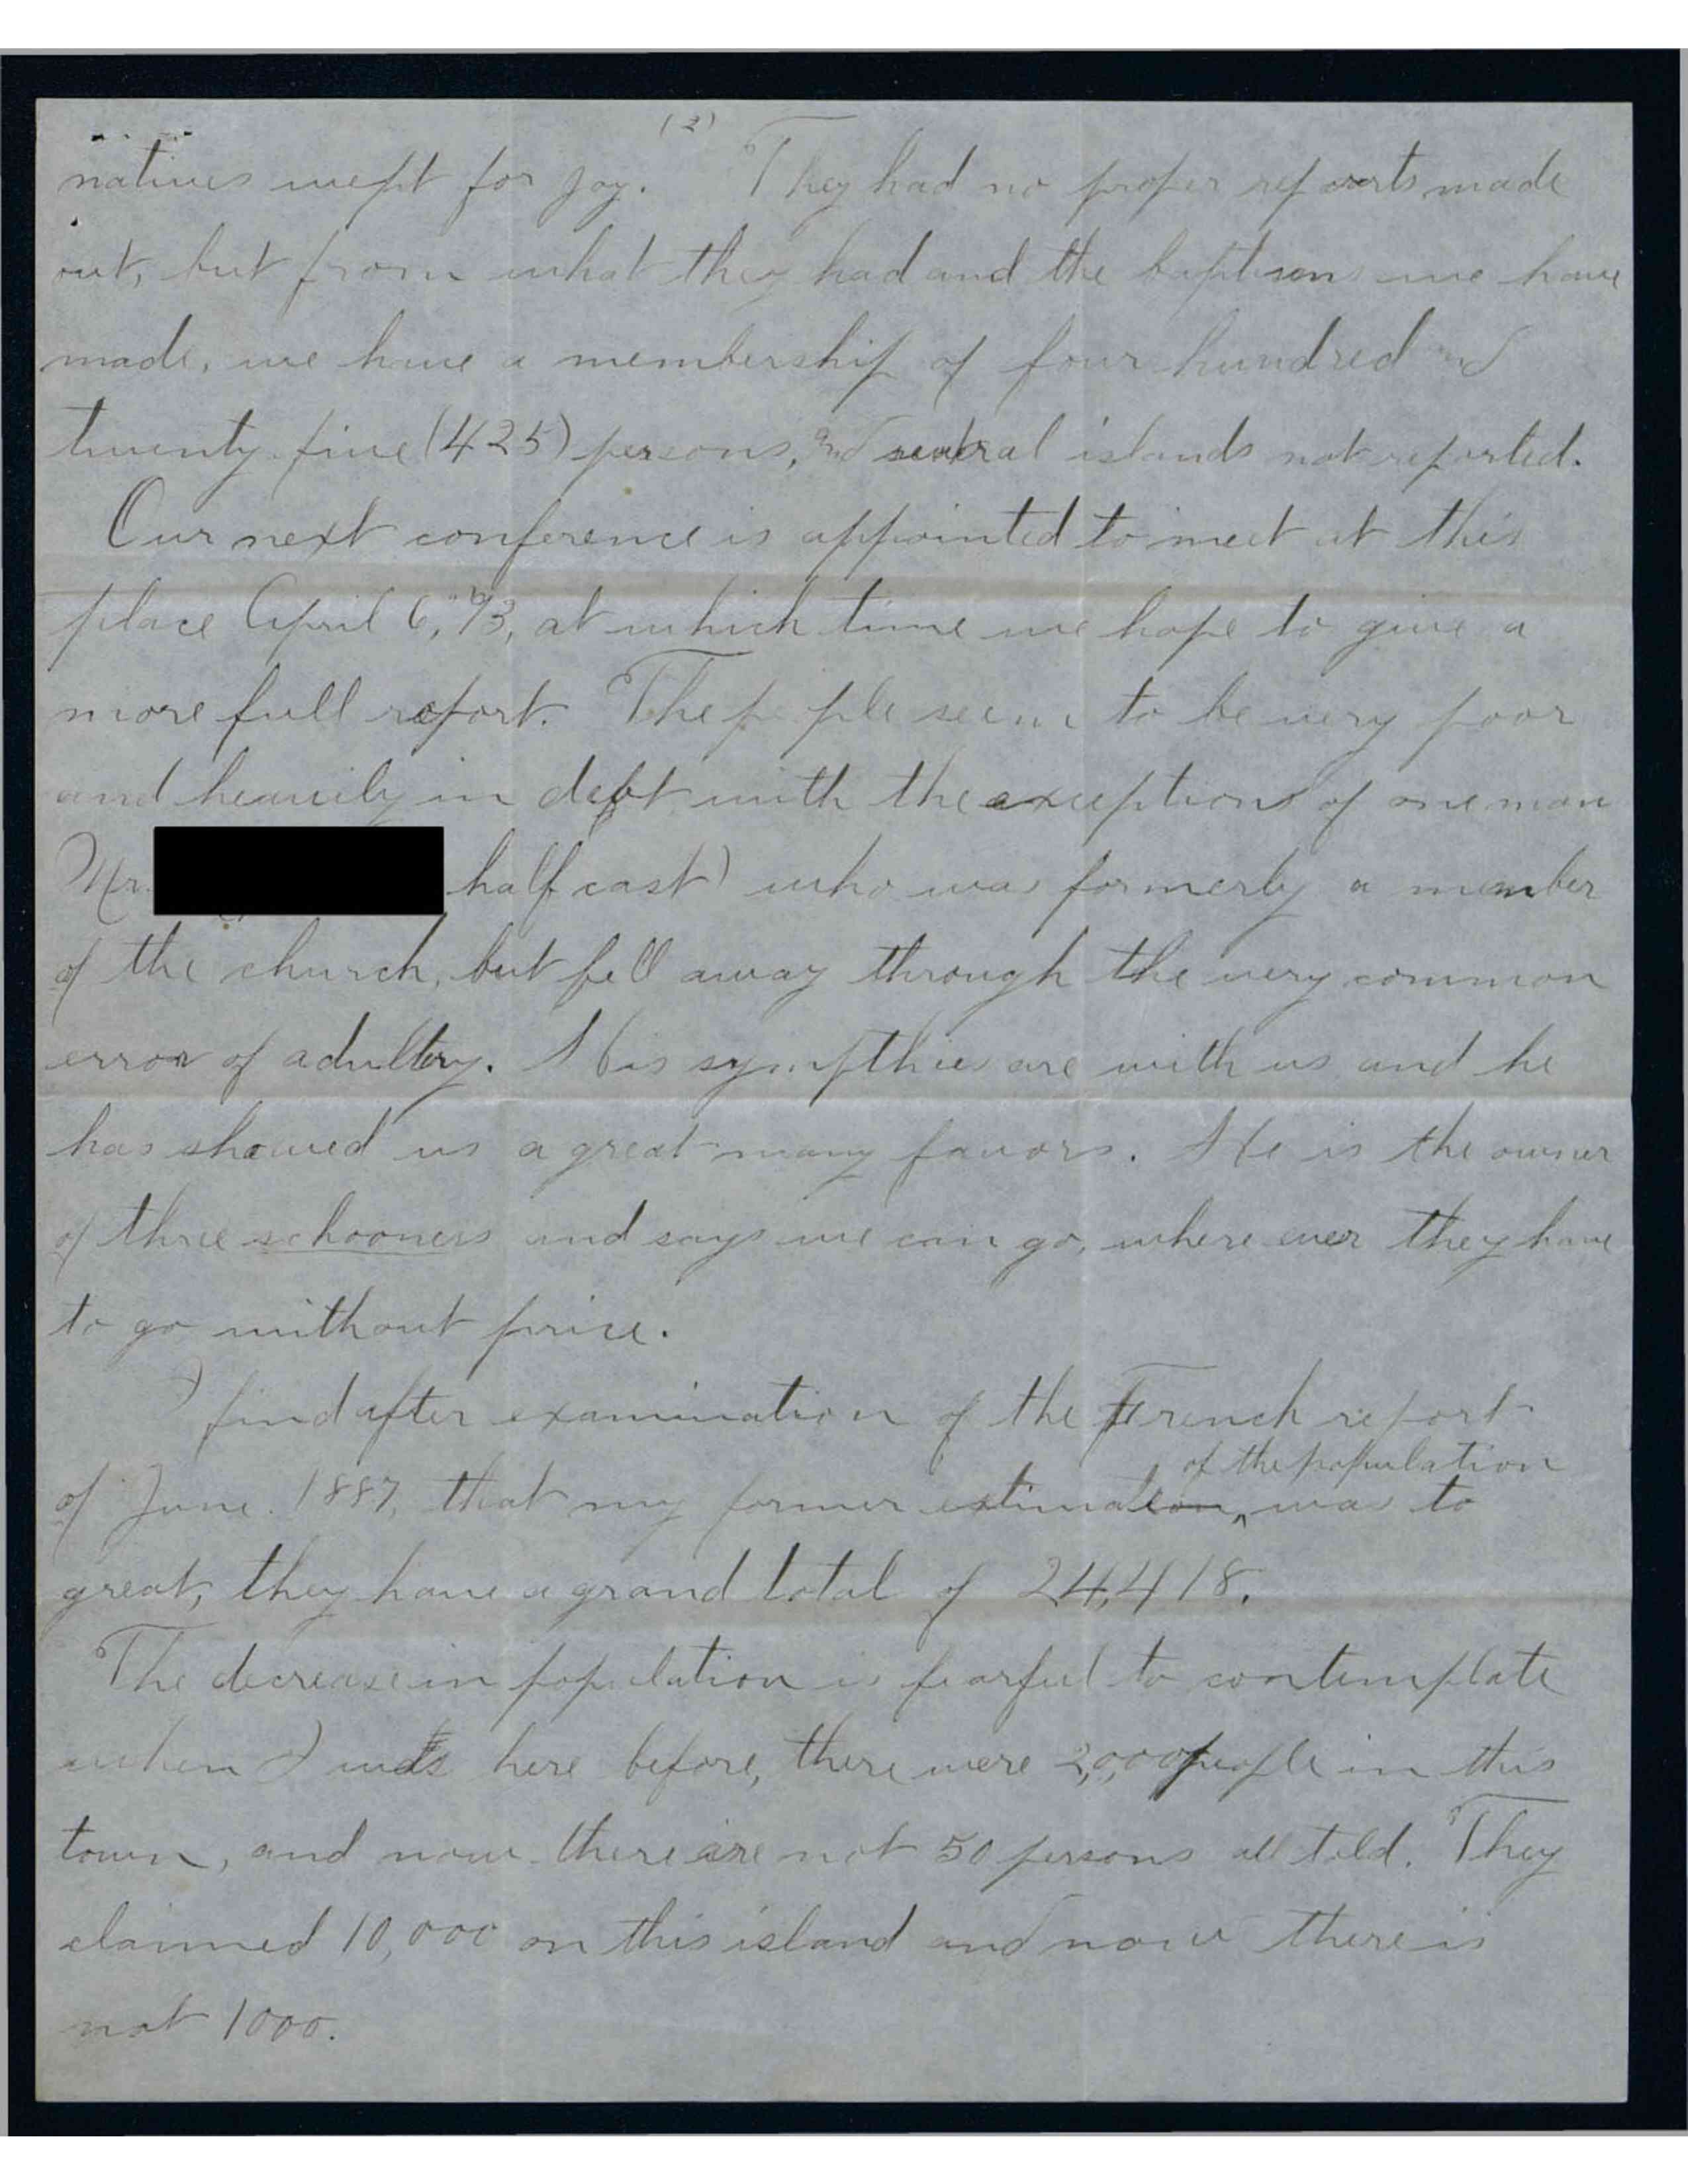 (2)
natives wept for joy. They had no proper reports made
out, but from what they had and the baptisms we have
made, we have a membership of four hundred and
twenty five (425) persons, and several islands not reported.
Our next conference is appointed to meet at this
place April 6, 93, at which time we hope to give a
more full report. The people seem to be very poor
and heavily in debt with the exceptions of one man
Mr. half cast) who was formerly a member
of the church, but fell away through the very common
error of adultery. His sympthies are with us and he
has showed us a great many favors. He is the owner
of three schooners and says we can go, where ever they have
to go without price.
I find after examination of the French report
of the population
of June. 1887, that my former estimation was to
great, they have a grand total of 24,418.
The decrease in population is fearful to contemplate
when I was here before, there were 2,000 people in this
town, and now there are not 50 persons all told. They
claimed 10,000 on this island and now there is
not 1000.